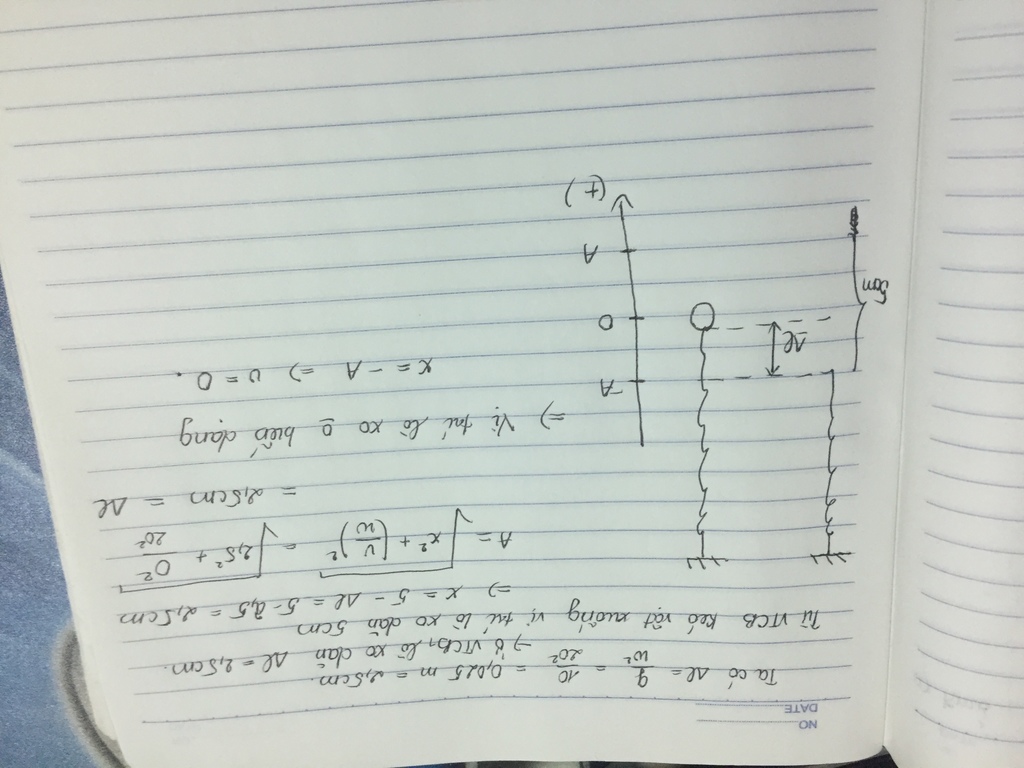 NO
DATE
Ta có Δl = g/ω² = 10/20² = 0,025 m = 2,5cm.
=) Ở VTCB, lò xo dãn Δl = 2,5cm.
Từ VTCB kéo vật xuống vị trí lò xo dãn 5cm
=) x = 5 - Δl = 5 - 2,5 = 2,5cm
A = √(x² + (v/ω)²) = √(2,5² + 0²/20²)
= 2,5cm = Δl
=) Vị trí lò xo o biến dạng
x = -A =) v = 0.
-A
Δl
O
A
5cm
(+)